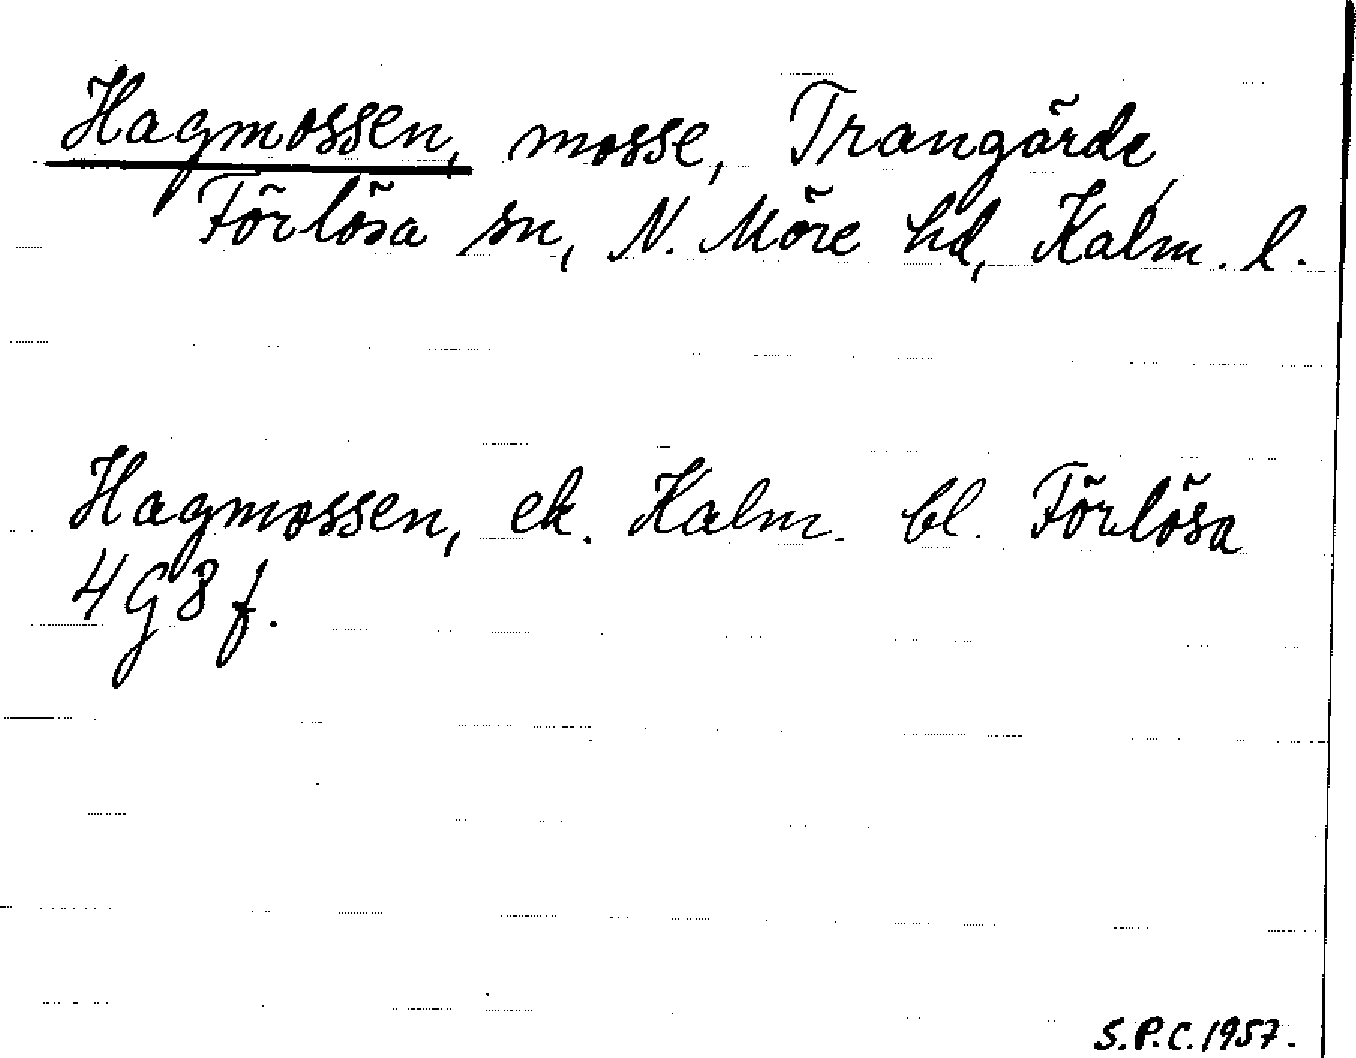 Hagmossen, mosse, Trangärde,
Förlösa sn, N. Möre hd, Kalm. l.
Hagmossen, ek. Kalm. bl. Förlösa
4G8f.
S.P.C. 1957.